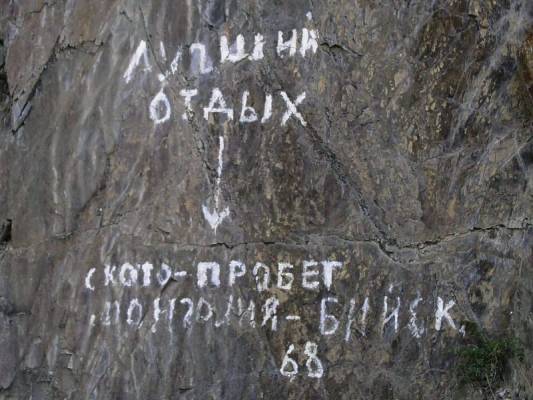 Лучший
отдых
ското-пробег
Монголия-Бийск
68